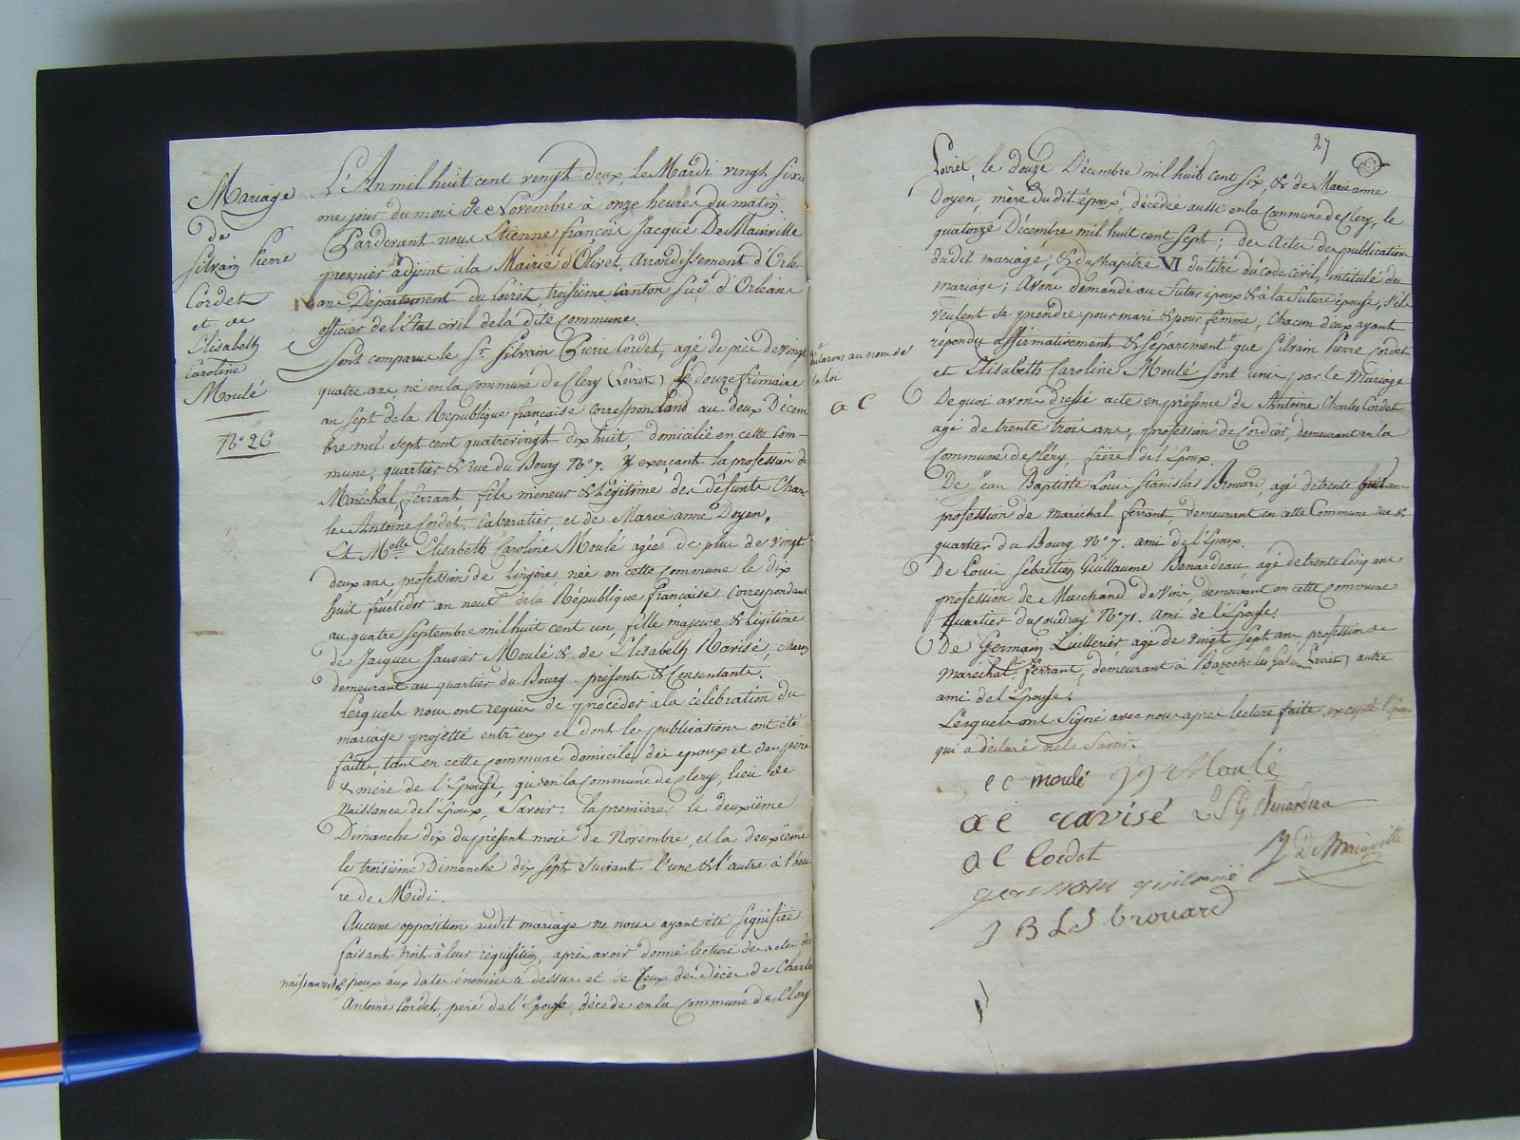 Mariage
de
Silvain Pierre
Cordet
et de
Elisabeth
Caroline
Moulé
N° 26
L'An mil huit cent vingt deux, le Mardi vingt sixi-
eme jour du mois de Novembre à onze heures du matin.
Pardevant nous Etienne françois Jacque De Mainville
premier adjoint à la Mairie d'Olivet, arrondissement d'Orle-
ans Département du Loiret, troisième Canton Sud d'Orleans
officier de l'Etat civil de la dite commune.
Sont comparus le Sr Silvain Pierre Cordet, agé de près de vingt
quatre ans, né en la commune de Clery (Loiret) le douze frimaire
an sept de la République française correspondant au deux Décem-
bre mil sept cent quatrevingt dix huit, domicilié en cette Com-
mune, quartier & rue du Bourg N° 7. y exerçant la profession de
Maréchal ferrant, fils mineur & légitime de défunts Char-
les Antoine Cordet, cabaretier, et de Marie anne Doyen,
Et Melle Elisabeth Caroline Moulé agée de plus de vingt
deux ans, profession de Lingère, née en cette commune le dix
huit fructidor an neuf de la République française correspondant
au quatre septembre mil huit cent un, fille majeure & légitime
de Jacques Moulé & de Elisabeth Ravisé, chacun
demeurant au quartier du Bourg présents & consentants.
Lesquels nous ont requis de procéder à la célébration du
mariage projetté entr'eux et dont les publications ont été
faites, tant en cette commune domicile des epoux et des père
& mère de l'Epouse, qu'en la Commune de Clery, lieu de
Naissance de l'Epoux, Savoir: la première le deuxième
Dimanche dix du présent mois de Novembre, et la deuxième
le troisième Dimanche dix sept suivant l'une & l'autre à l'heu-
re de Midi.
Aucune opposition audit mariage ne nous ayant été Signifiée
faisant droit à leur réquisition, après avoir donné lecture des actes de
naissance des epoux aux dates énoncées ci dessus et de Ceux de décès de Charles
Antoine Cordet, père de l'Epoux, décédé en la Commune de Clery
27
Loiret, le douze Décembre mil huit cent six, & de Marie anne
Doyen, mère du dit époux, décédée aussi en la Commune de Clery, le
quatorze Décembre mil huit cent sept; des Actes de publication
du dit mariage, & du chapitre VI du titre du code civil, intitulé du
mariage; Avons demandé au Futur époux & à la future épouse, s'ils
veulent se prendre pour mari & pour femme, chacun d'eux ayant
répondu affirmativement & séparément que Silvain Pierre Cordet
déclarons au nom de
la loi
et Elisabeth Caroline Moulé sont unis par le Mariage
a C
De quoi avons dressé acte en présence de Antoine Charles Cordet
agé de trente trois ans, profession de cordier, demeurant en la
Commune de Clery, frère de l'Epoux.
De Jean Baptiste Louis Stanislas Brouard, agé de trente huit ans
profession de maréchal ferrant, demeurant en cette Commune rue &
quartier du Bourg N° 7. ami de l'Epoux.
De Louis Sébastien Guillaume Benardeau, agé de trente cinq ans
profession de Marchand de Vin, demeurant en cette commune
quartier du N° 71. Ami de l'Epouse.
De Germain Luillerier agé de vingt sept ans profession de
maréchal ferrant, demeurant à (Loiret) autre
ami de l'Epouse.
Lesquels ont Signé avec nous après lecture faite, excepté l'Epoux
qui a déclaré ne le Savoir.
e c moulé JJ Moulé
a e ravisé L S G Benardeau
a C Cordet
J De Mainville
J B L S brouard